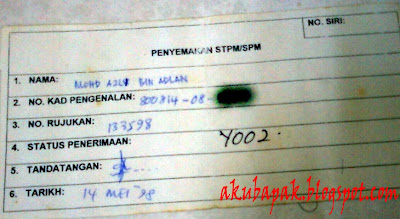 NO. SIRI:
PENYEMAKAN STPM/SPM
1. NAMA: MOHD AZLI BIN ADLAN
2. NO. KAD PENGENALAN: 800814-08-
3. NO. RUJUKAN: 133598
4. STATUS PENERIMAAN: Y002.
5. TANDATANGAN:
6. TARIKH: 14 MEI '98
akubapak.blogspot.com